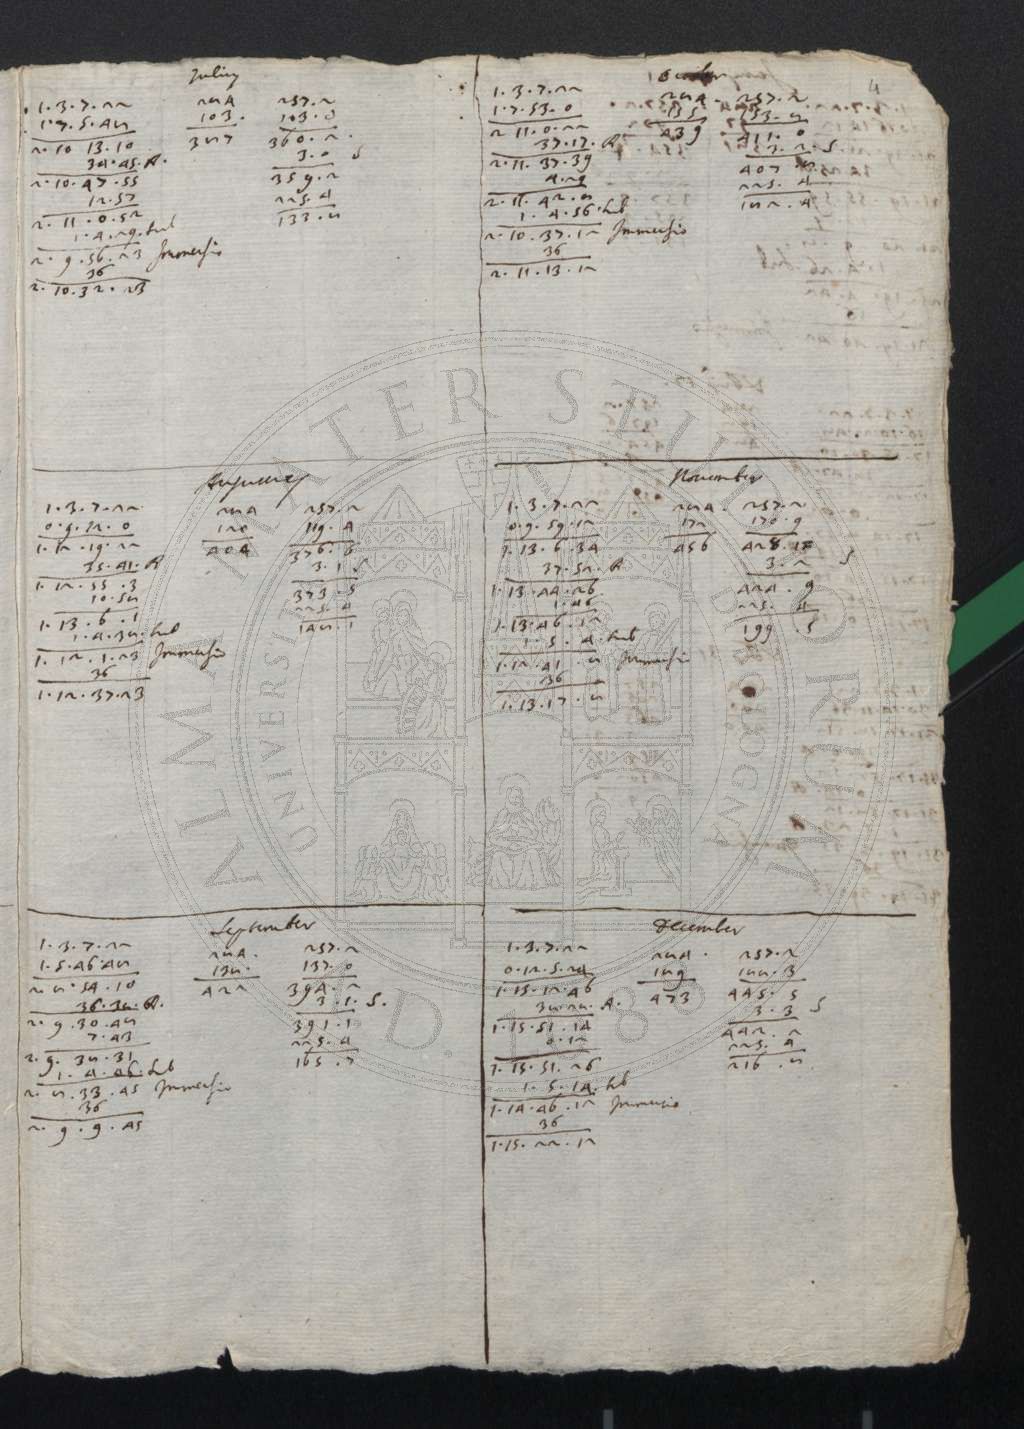 4
Julius
1.3.7.22 284 257.2
1.7.5.48 103. 103.0
2.10.13.10 387 360.2
34.45.A. 3.0 S
2.10.47.55 359.2
12.57 225.4
2.11.0.52 133.8
1.4.29.sub
2.9.56.23 Immersio
36
2.10.32.23
Augustus
1.3.7.22 284 257.2
0.9.12.0 120 119.4
1.12.19.22 404 376.6
35.41.A 3.1.S
1.12.55.3 373.5
10.58 225.4
1.13.6.1 148.1
1.4.38.sub
1.12.1.23 Immersio
36
1.12.37.23
September
1.3.7.22 284. 257.2
1.5.46.48 138. 137.0
2.8.54.10 422 394.2
36.38.A. 3.1.S.
2.9.30.48 391.1
7.43 225.4
2.9.38.31 165.7
1.4.46.sub
2.8.33.45 Immersio
36
2.9.9.45
October
1.3.7.22 284. 257.2
1.7.53.0 155 153.8
2.11.0.22 439 411.0
37.17.A 3.2.S.
2.11.37.39 407.8
4.29 225.4
2.11.42.8 182.4
1.4.56.sub
2.10.37.12 Immersio
36
2.11.13.12
November
1.3.7.22 284. 257.2
0.9.59.12 172 170.9
1.13.6.34 456 428.12
37.52.A 3.2 S
1.13.44.26 424.9
1.46 225.4
1.13.46.12 199.5
1.5.4.sub
1.12.41.8 Immersio
36
1.13.17.8
December
1.3.7.22 284. 257.2
0.12.5.24 189 188.3
1.15.12.46 473 445.5
38.28.A. 3.3 S
1.15.51.14 442.2
0.12 225.4
1.15.51.26 216.8
1.5.14.sub
1.14.46.12 Immersio
36
1.15.22.12
ALMA MATER STUDIORUM
UNIVERSITÀ DI BOLOGNA
A.D. 1088